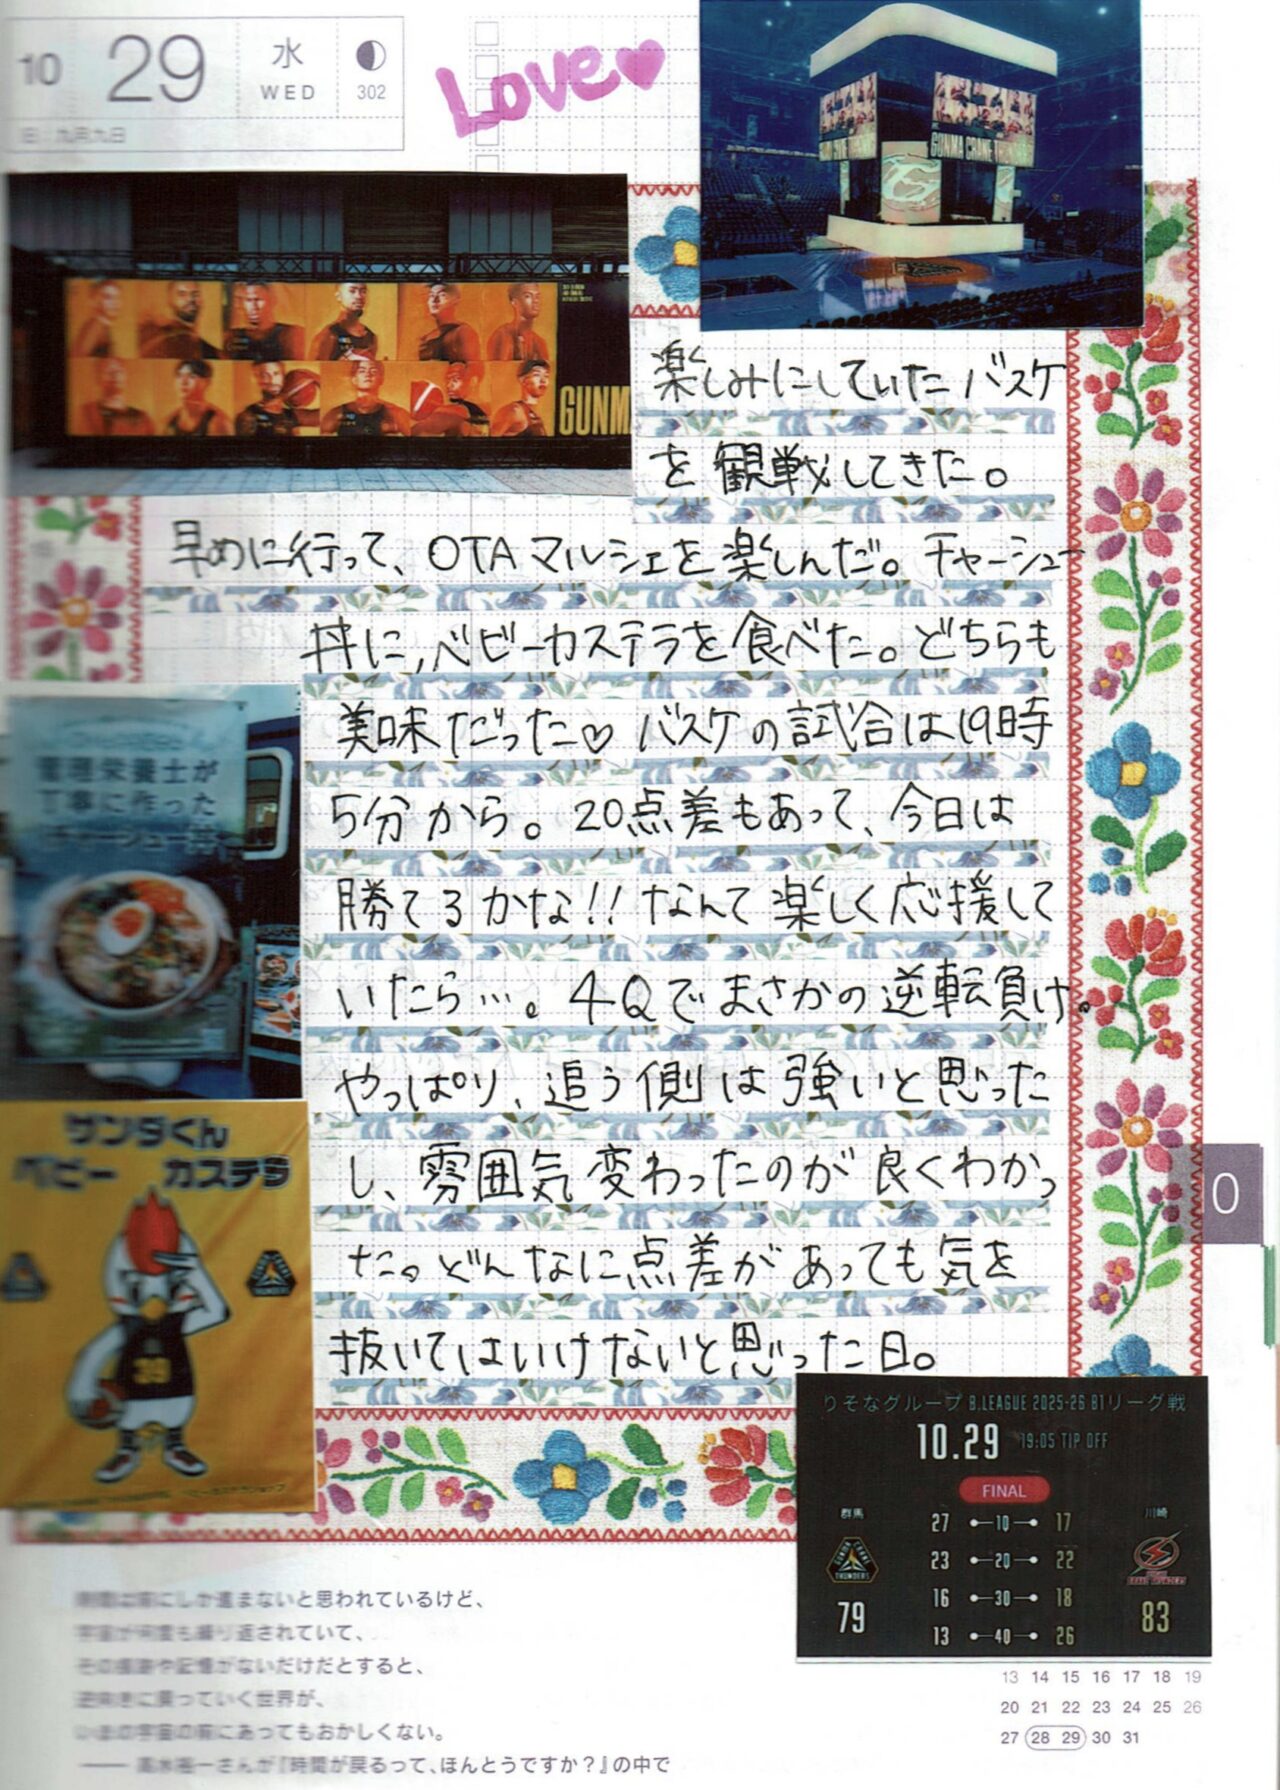 10 29 水 WED 302
旧:九月九日
Love♥
GUNMA CRANE THUN
GUNM
楽しみにしていたバスケ
を観戦してきた。
早めに行って、OTAマルシェを楽しんだ。チャーシュー
丼に,ベビーカステラを食べた。どちらも
美味だった♡ バスケの試合は19時
5分から。20点差もあって、今日は
勝てるかな!! なんて楽しく応援して
いたら…。4Qでまさかの逆転負け。
やっぱり、追う側は強いと思った
し、雰囲気変わったのが良くわかっ
た。どんなに点差があっても気を
抜いてはいけないと思った日。
管理栄養士が
丁寧に作った
チャーシュー丼
サンダくん
ベビー カステラ
39
0
りそなグループ B.LEAGUE 2025-26 B1リーグ戦
10.29 19:05 TIP OFF
FINAL
群馬 川崎
27 1Q 17
23 2Q 22
16 3Q 18
13 4Q 26
79 83
時間は前にしか進まないと思われているけど、
宇宙が何度も繰り返されていて、
その痕跡や記憶がないだけだとすると、
逆向きに戻っていく世界が、
いまの宇宙の前にあってもおかしくない。
—— 高水裕一さんが『時間が戻るって、ほんとうですか?』の中で
13 14 15 16 17 18 19
20 21 22 23 24 25 26
27 28 29 30 31